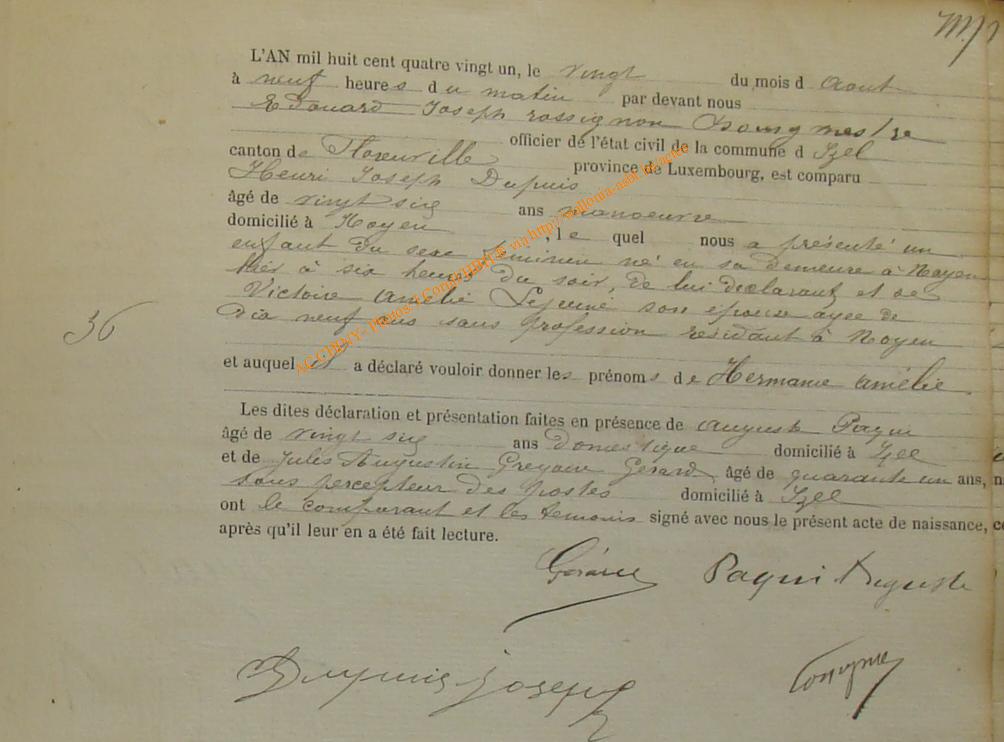 L'AN mil huit cent quatre vingt un, le vingt du mois d aout
à neuf heures du matin par devant nous
Edouard Joseph rossignon Bourgmestre
officier de l'état civil de la commune d Izel
canton de Florenville province de Luxembourg, est comparu
Henri Joseph Dupuis
âgé de vingt six ans manoeuvre
domicilié à Moyen, le quel nous a présenté un
enfant du sexe feminin né en sa demeure à Moyen
hier à six heures du soir, de lui déclarant et de
Victoire Amélie Lejeune son épouse agée de
dix neuf ans sans profession résidant à Moyen
36
et auquel il a déclaré vouloir donner les prénoms de Hermance Amélie
Les dites déclaration et présentation faites en présence de Auguste Paqui
âgé de vingt six ans Domestique domicilié à Izel
et de Jules Augustin Grégoire Gérard âgé de quarante un ans,
sous percepteur des postes domicilié à Izel
ont le comparant et les temoins signé avec nous le présent acte de naissance,
après qu'il leur en a été fait lecture.
Gérard Paqui Auguste
Dupuis Joseph
ACCHMY- Photos: J.Como/HBH® via http://wallonia-asbl.be/ancre